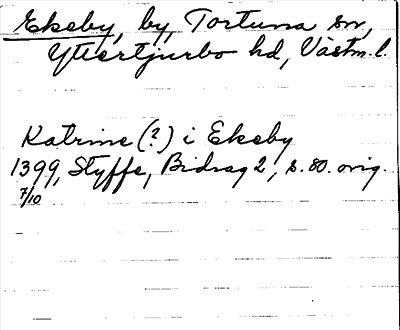 Ekeby, by, Tortuna sn,
Yttertjurbo hd, Västm. l.
Katrine (?) i Ekeby
1399, Styffe, Bidrag 2, s. 80. orig.
7/10